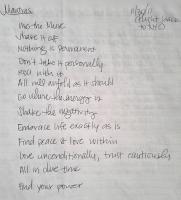 Mantras
11/29/11
flight back
to NYC
Use the Muse
Shake it off
Nothing is permanent
Don't take it personally
Roll with it
All will unfold as it should
Go where the energy is
Shake the negativity
Embrace life exactly as is
Find peace & love within
Love unconditionally, trust cautiously
All in due time
Find your power